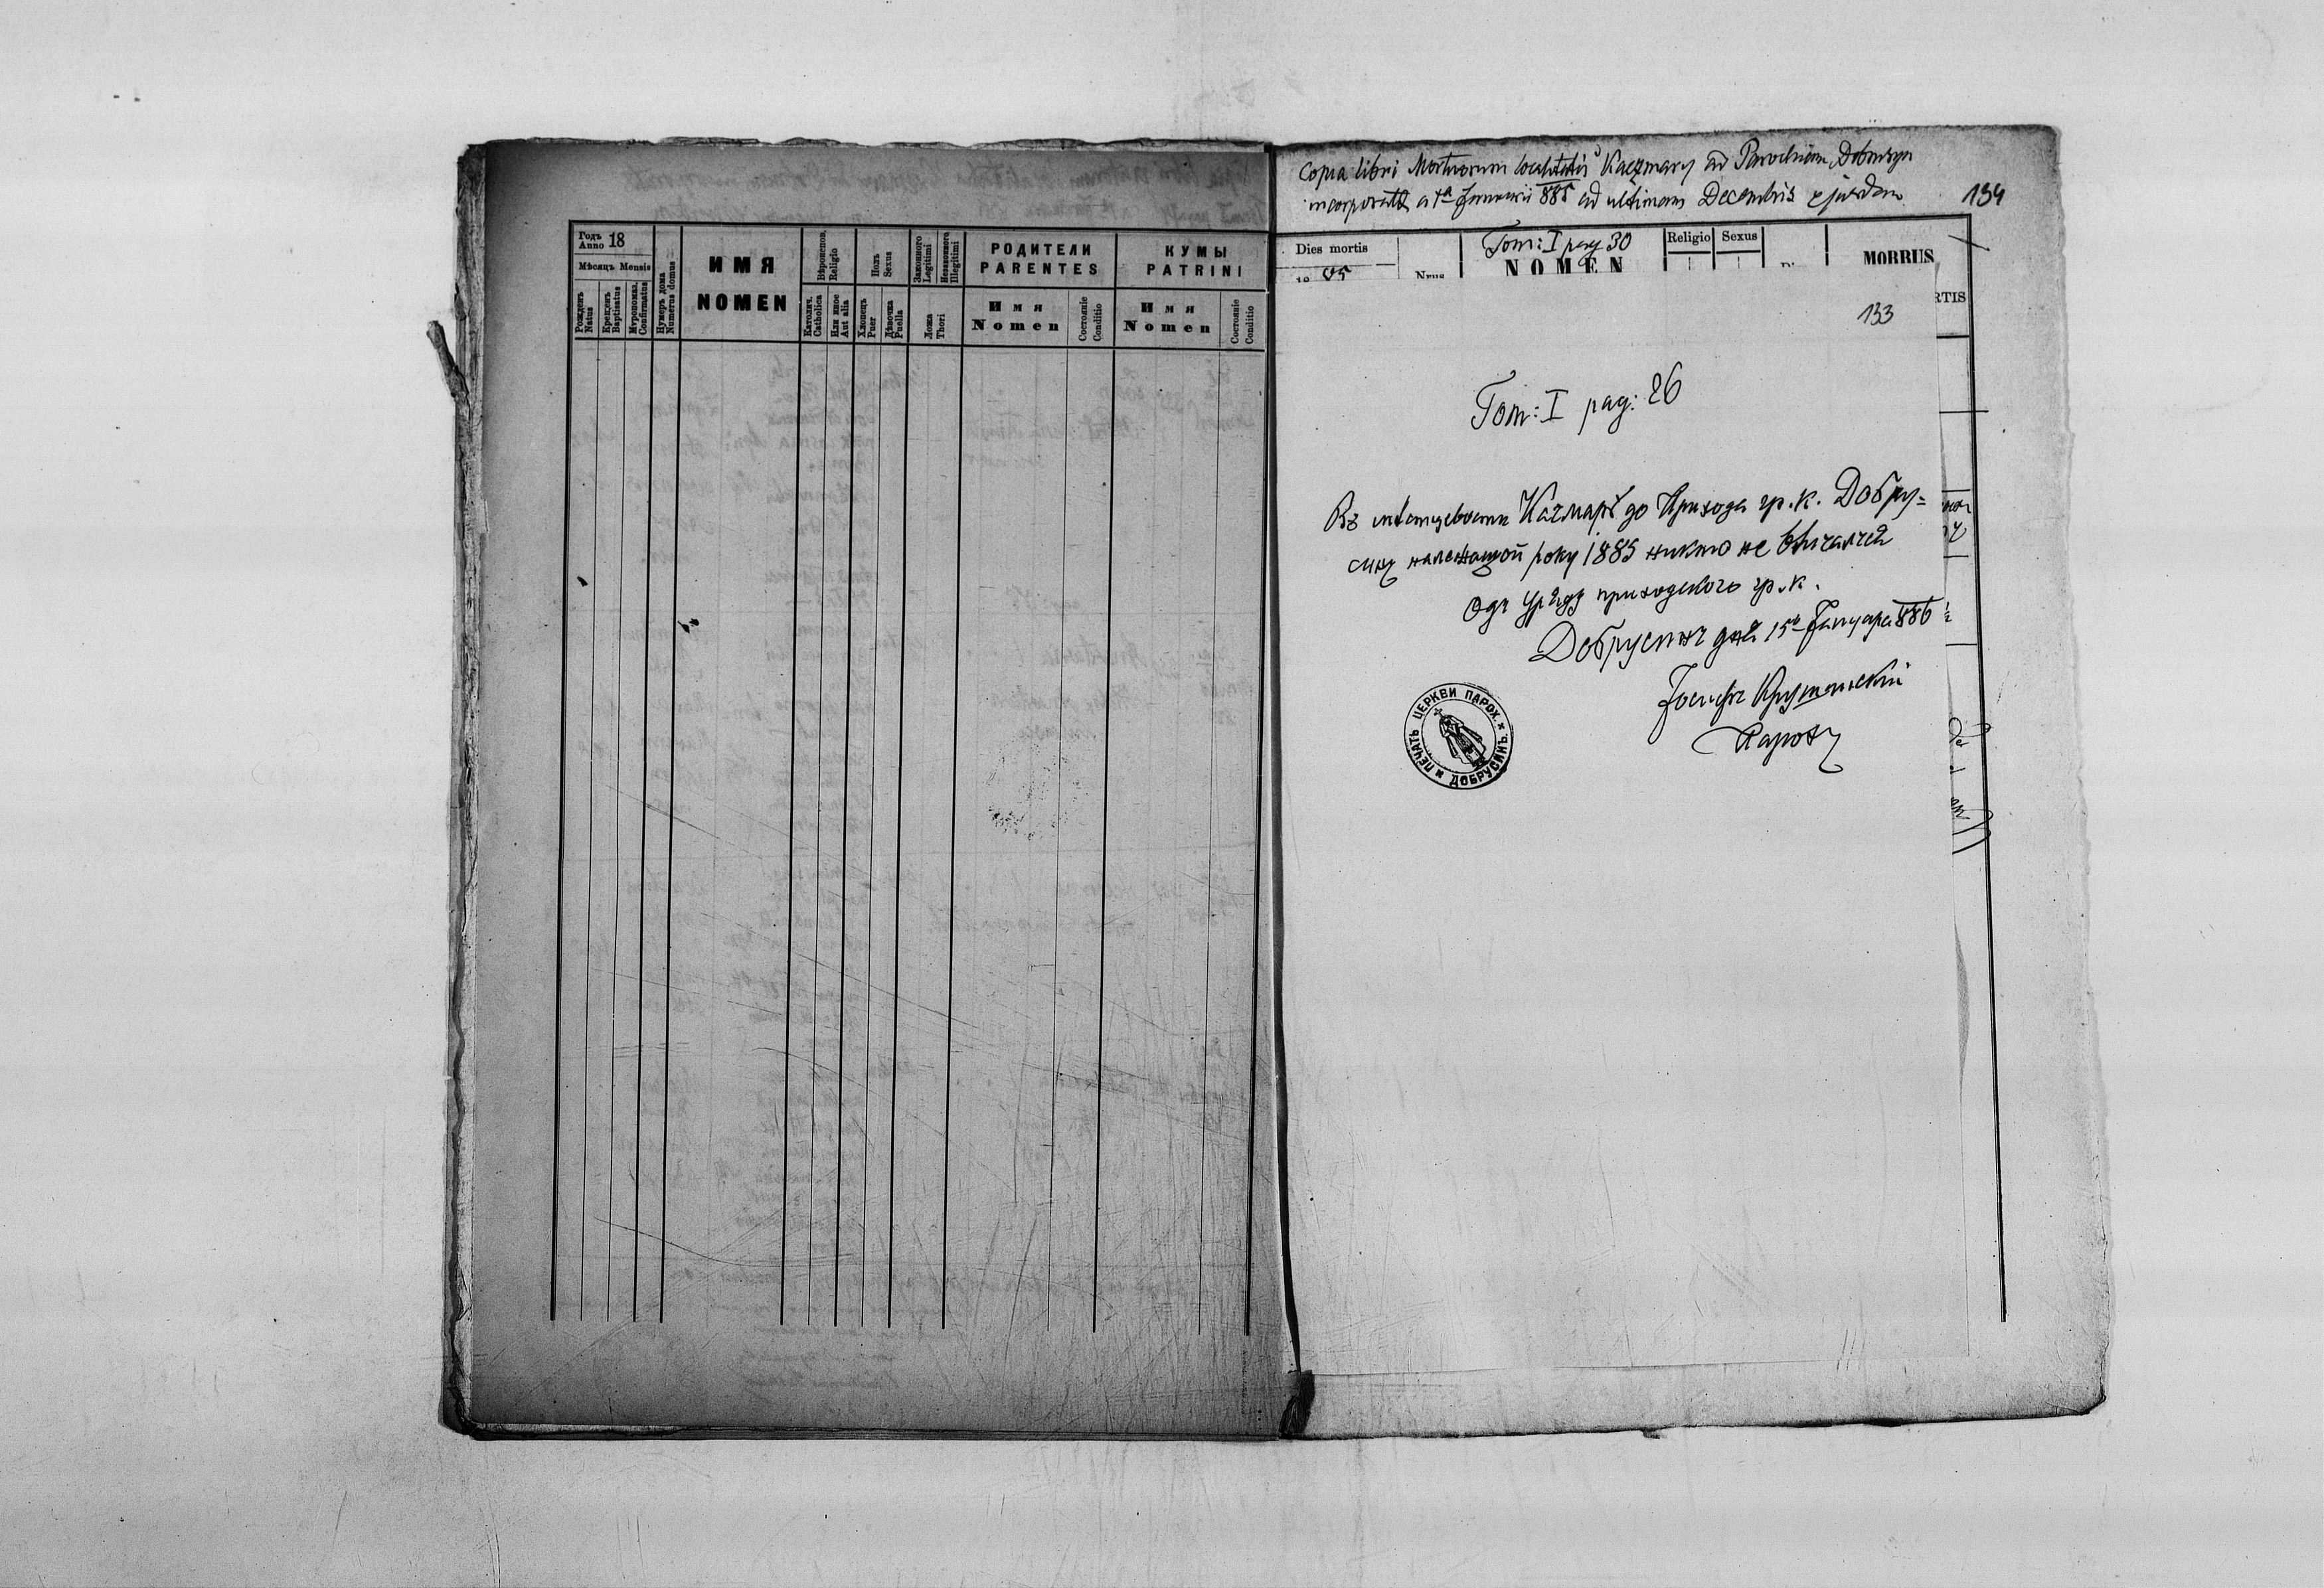 Годъ
Anno 18
Мѣсяцъ Mensis
Рожденъ
Natus
Крещенъ
Baptisatus
Мѵропомаз.
Confirmatus
Нумеръ дома
Numerus domus
ИМЯ
NOMEN
Вѣроиспов.
Religio
Католич.
Catholica
Или иное
Aut alia
Полъ
Sexus
Хлопецъ
Puer
Дѣвочка
Puella
Законного
Legitimi
Незаконного
Illegitimi
Ложа
Thori
РОДИТЕЛИ
PARENTES
Имя
Nomen
Состояніе
Conditio
КУМЫ
PATRINI
Имя
Nomen
Состояніе
Conditio
Copia libri Mortuorum localitatis Kaczmary ad Parochiam Dobrusyn
incorporatae a 1a Januarii 885 ad ultimam Decembris ejusdem
134
Tom: I pag 30
Dies mortis
18 85
Nrus
NOMEN
Religio
Sexus
MORBUS
RTIS
133
Tom: I pag: 26
Въ мѣстцевости Качмарѣ до Прихода гр. к. Добру=
синъ належащой року 1885 никто не вѣнчался
Одъ Урядъ приходского гр. к.
Добрусинъ дня 15ь Januара 886
Іосифъ Крушинскій
Парохъ
ПЕЧАТЬ ЦЕРКВИ ПАРОХ. ДОБРУСИНЪ.